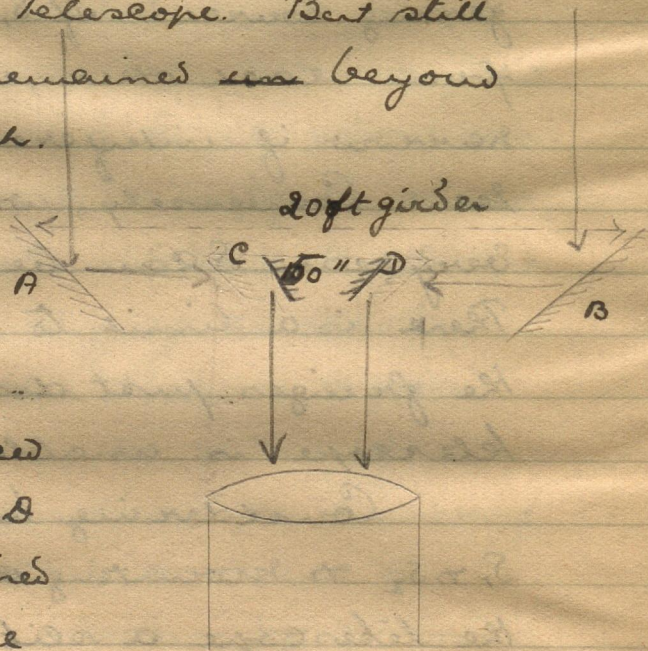 Telescope. But still
emained un beyond
h.
20ft girder
C 100" D
A
B
..
eed
D
ned
e